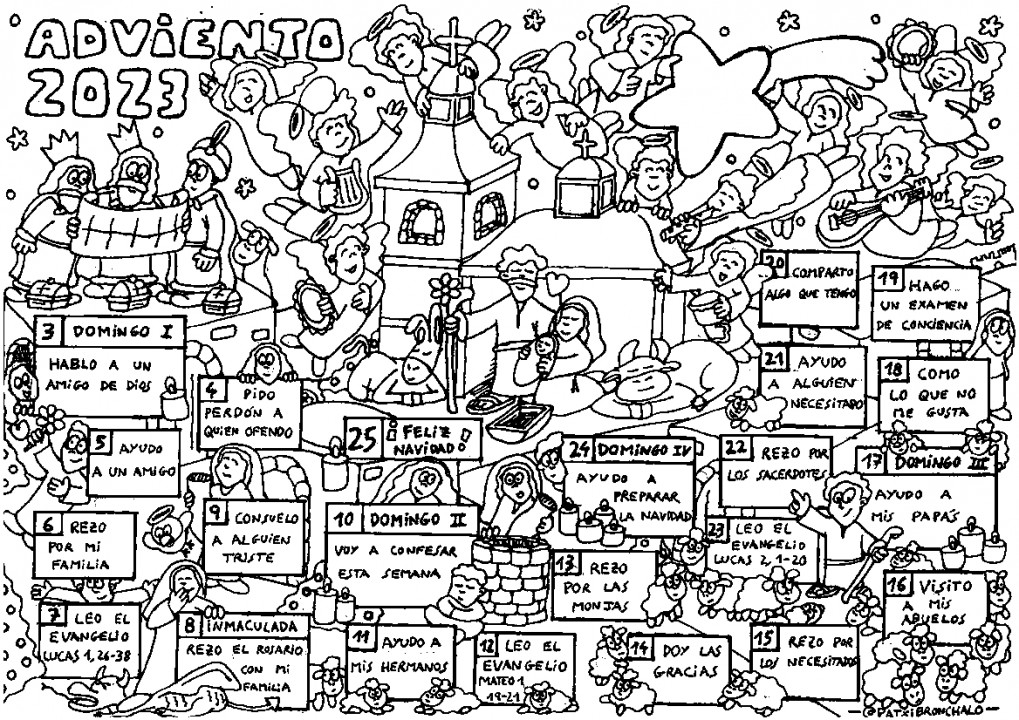 ADVIENTO
2023
3 DOMINGO I
HABLO A UN
AMIGO DE DIOS
4 PIDO
PERDÓN A
QUIEN OFENDO
5 AYUDO
A UN AMIGO
6 REZO
POR MI
FAMILIA
7 LEO EL
EVANGELIO
LUCAS 1, 26-38
8 INMACULADA
REZO EL ROSARIO
CON MI
FAMILIA
9 CONSUELO
A ALGUIEN
TRISTE
10 DOMINGO II
VOY A CONFESAR
ESTA SEMANA
11 AYUDO A
MIS HERMANOS
12 LEO EL
EVANGELIO
MATEO 1
18-21
13 REZO
POR LAS
MONJAS
14 DOY LAS
GRACIAS
15 REZO POR
LOS NECESITADOS
16 VISITO
A MIS
ABUELOS
17 DOMINGO III
AYUDO A
MIS PAPÁS
18 COMO
LO QUE NO
ME GUSTA
19 HAGO
UN EXAMEN
DE CONCIENCIA
20 COMPARTO
ALGO QUE TENGO
21 AYUDO
A ALGUIEN
NECESITADO
22 REZO POR
LOS SACERDOTES
23 LEO EL
EVANGELIO
LUCAS 2, 1-20
24 DOMINGO IV
AYUDO A
PREPARAR
LA NAVIDAD
25 ¡FELIZ
NAVIDAD!
@PATXIBRONCHALO